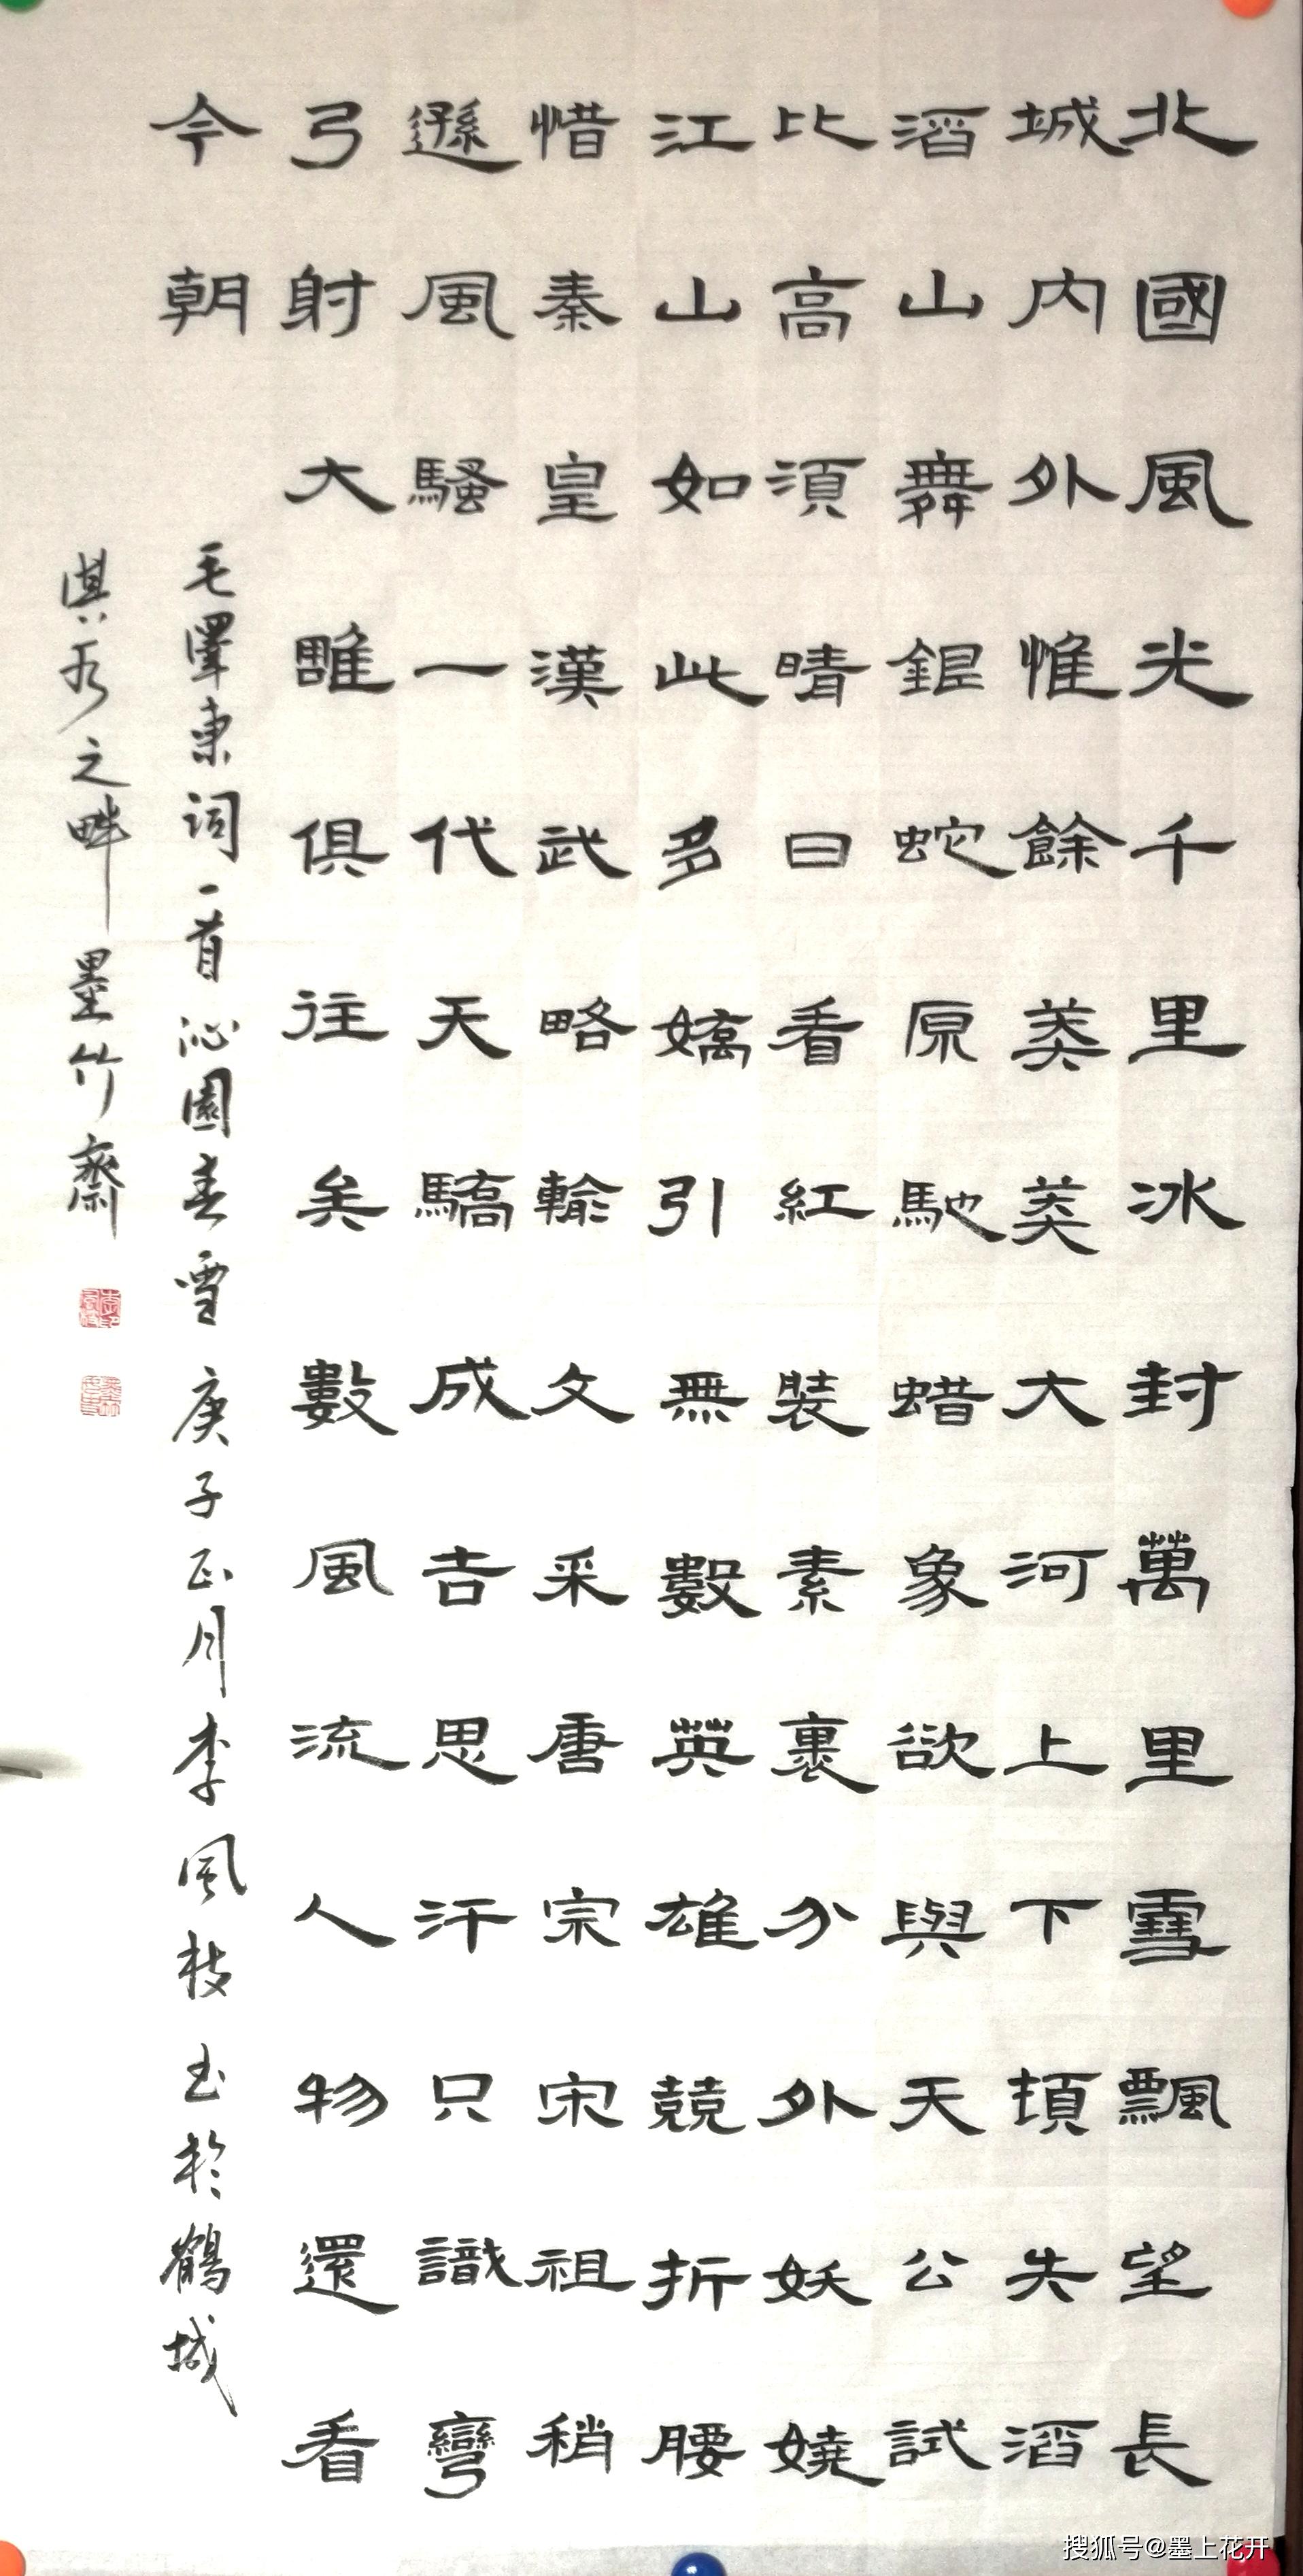 北國風光千里冰封萬里雪飄望長
城內外惟餘莽莽大河上下頓失滔
滔山舞銀蛇原馳蜡象欲與天公試
比高須晴日看紅裝素裹分外妖嬈
江山如此多嬌引無數英雄競折腰
惜秦皇漢武略輸文采唐宗宋祖稍
遜風騷一代天驕成吉思汗只識彎
弓射大雕俱往矣數風流人物還看
今朝
毛澤東詞一首沁園春雪 庚子正月李風枝书於鶴城
淇水之畔墨竹齋
搜狐号@墨上花开